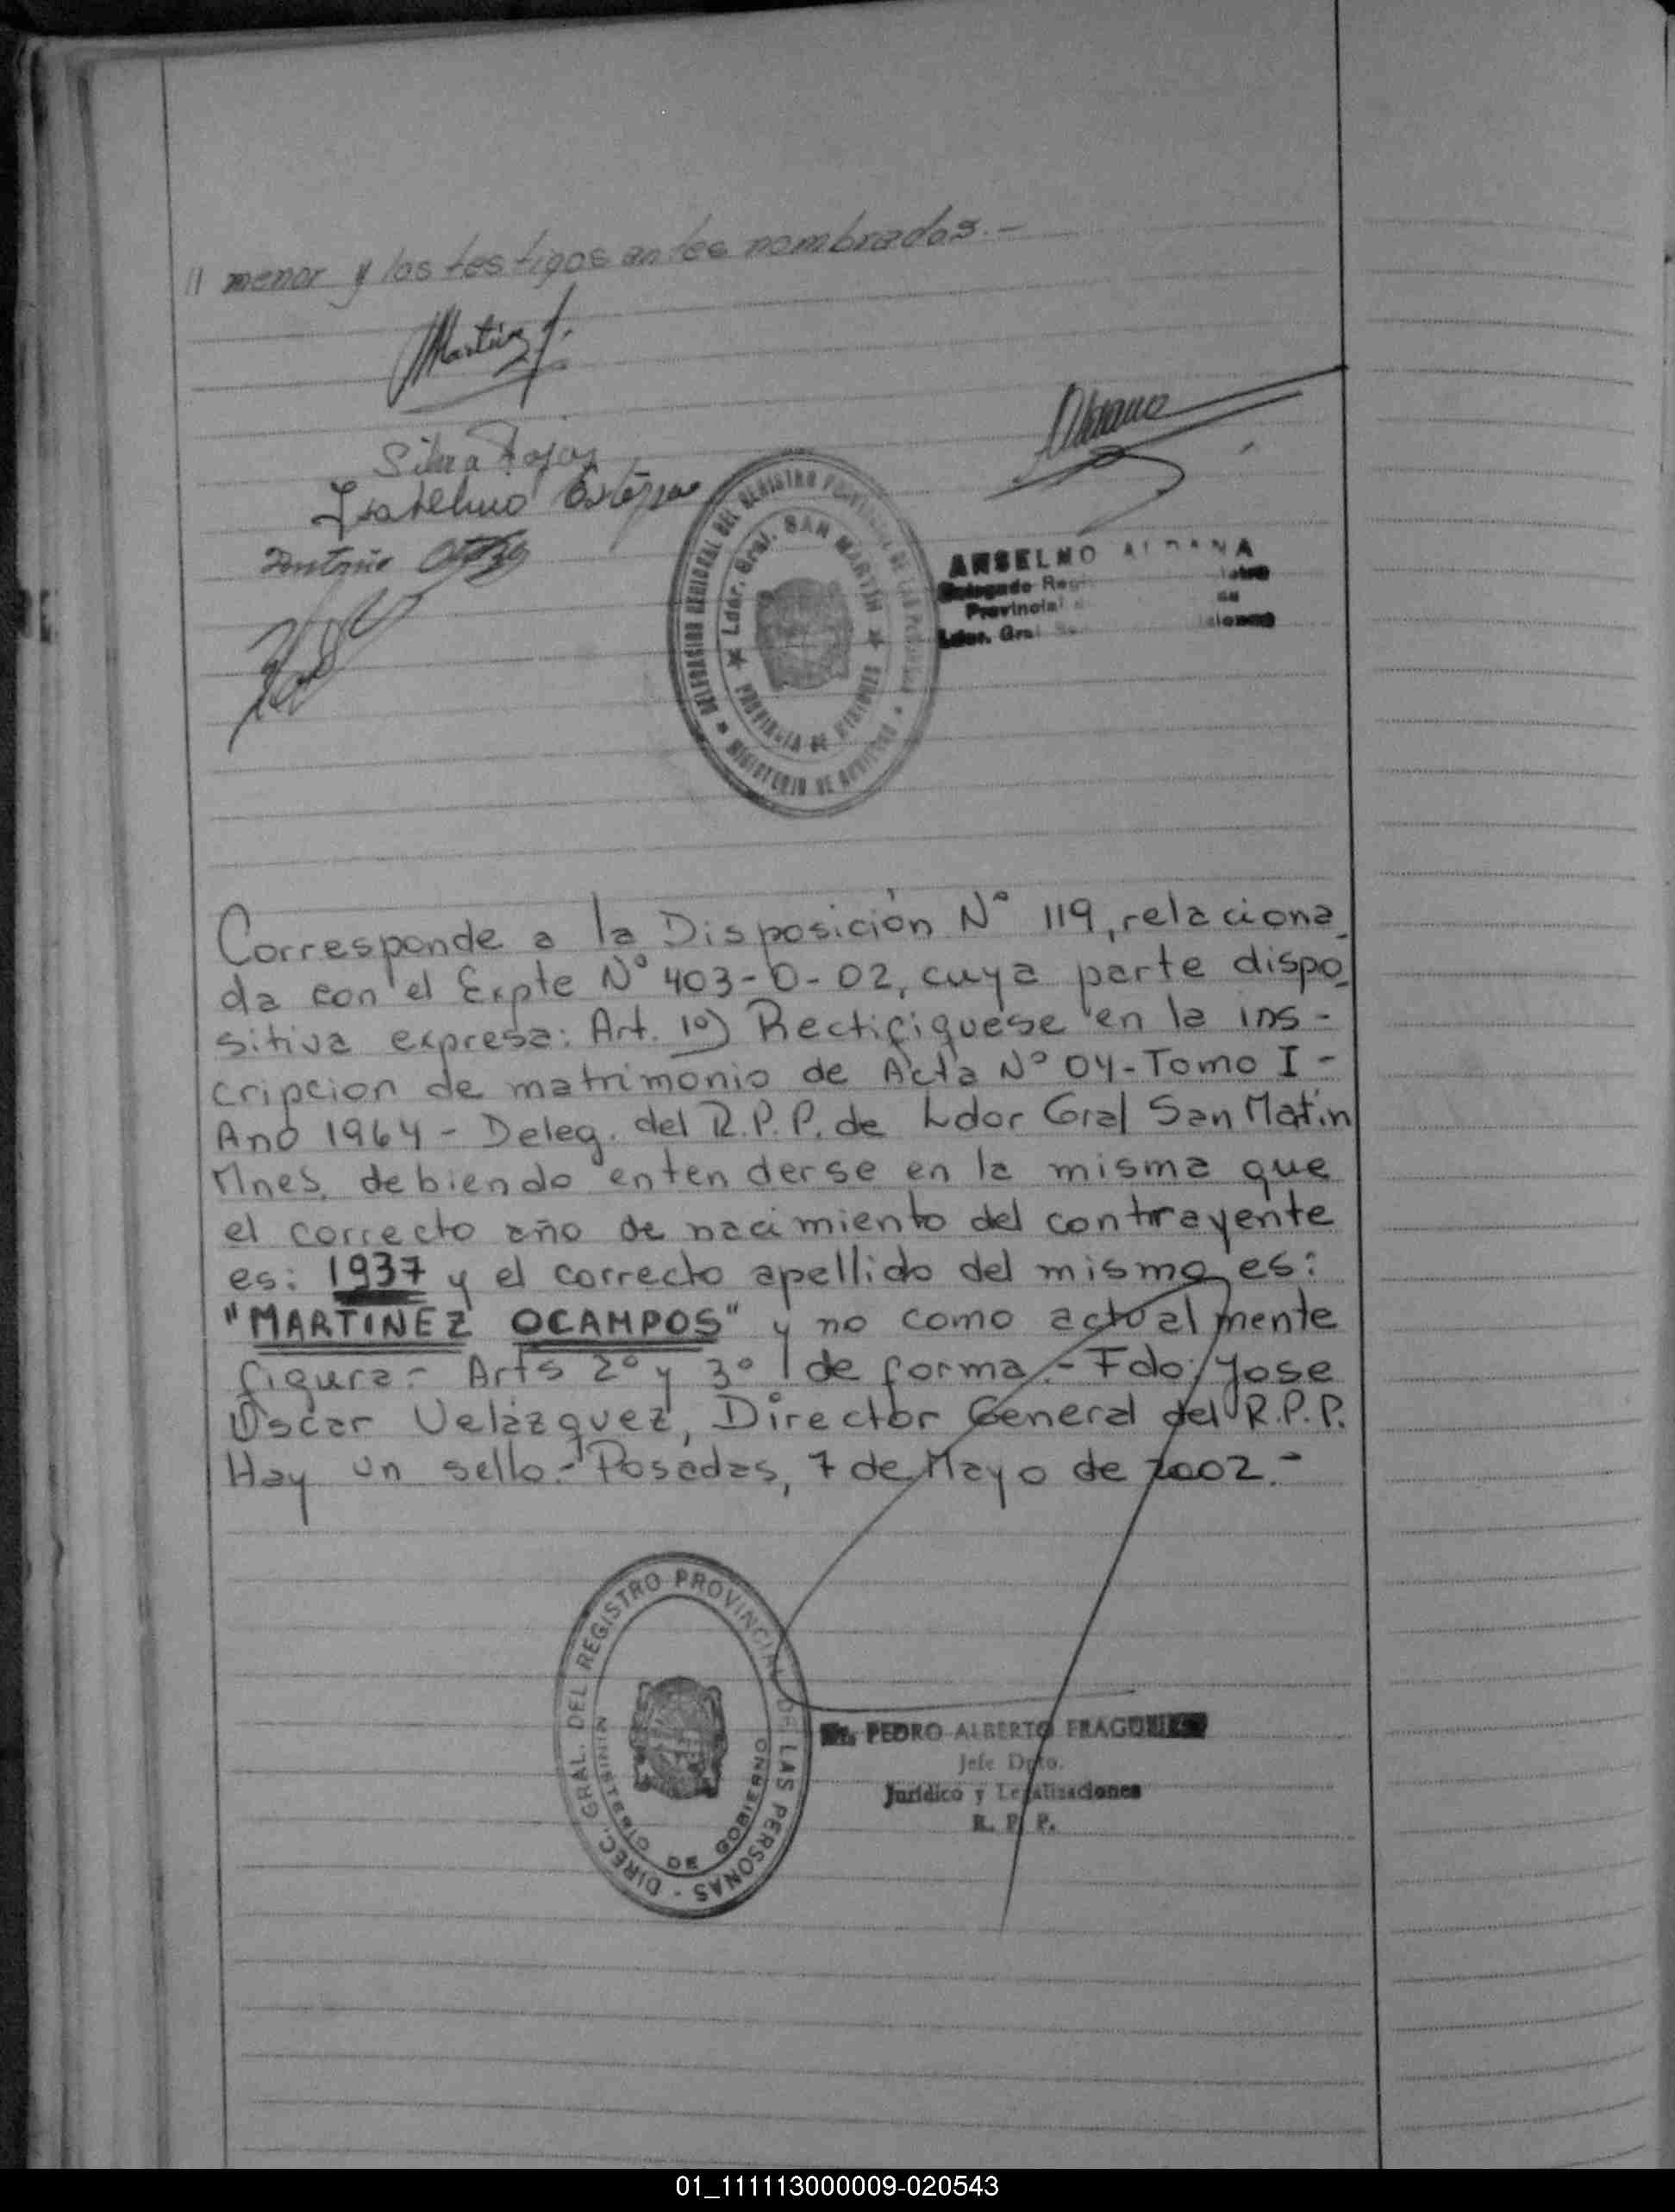 // menor y los testigos antes nombrados.-
Martinez J.
Silva Rojas
Antonio
DELEGACION REGIONAL DEL REGISTRO PROVINCIAL DE LAS PERSONAS
Ldor. Gral. SAN MARTIN
PROVINCIA DE MISIONES
MINISTERIO DE
ANSELMO ALDANA
Delegado
Provincial
Ldor. Gral
Corresponde a la Disposición N° 119, relaciona
da con el Expte N° 403-0-02, cuya parte dispo
sitiva expresa: Art. 1°) Rectifiquese en la ins-
cripcion de matrimonio de Acta N° 04-Tomo I-
Ano 1964 - Deleg. del R.P.P. de Ldor Gral San Matin
Mnes, debiendo entenderse en la misma que
el correcto año de nacimiento del contrayente
es: 1937 y el correcto apellido del mismo es:
"MARTINEZ OCAMPOS" y no como actualmente
figura- Arts 2° y 3° de forma.- Fdo: Jose
Oscar Velázquez, Director General del R.P.P.
Hay un sello.- Posadas, 7 de Mayo de 2002.-
DIREC. GRAL. DEL REGISTRO PROVINCIAL DE LAS PERSONAS -
MINISTERIO DE GOBIERNO
PEDRO ALBERTO
Jefe Dpto.
Jurídico y Legalizaciones
R. P. P.
01_111113000009-020543